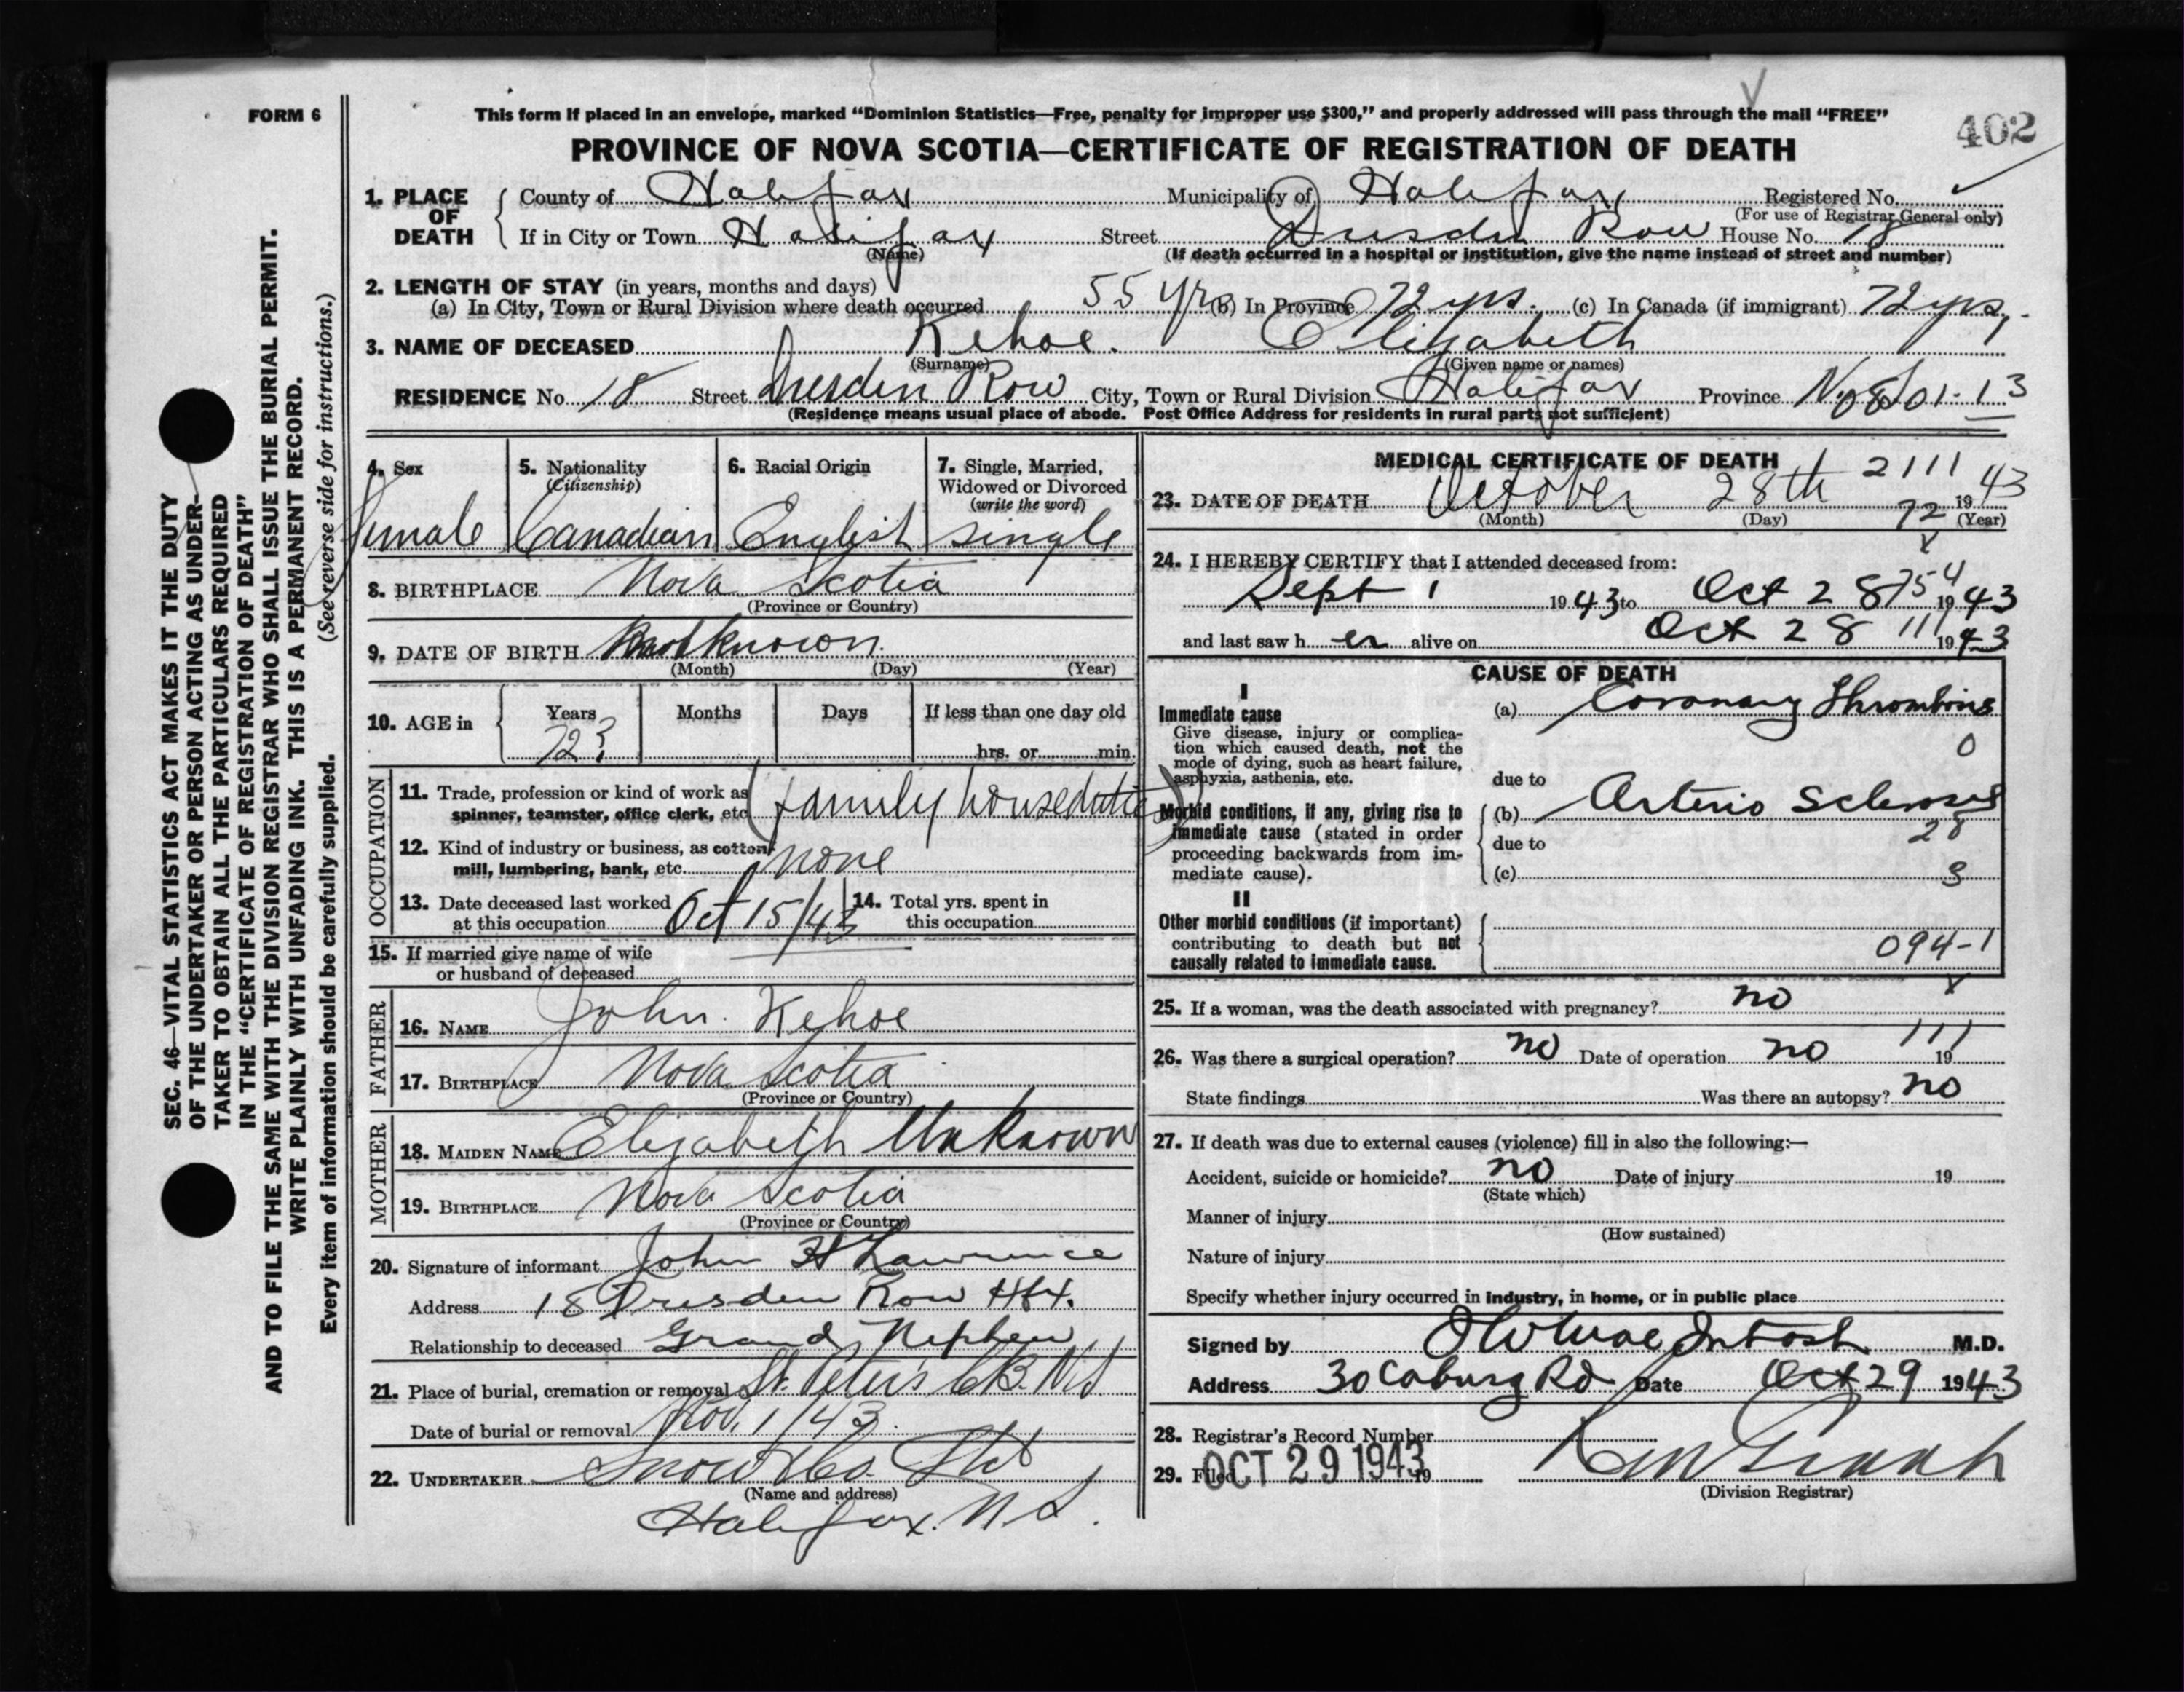 FORM 6
This form if placed in an envelope, marked “Dominion Statistics—Free, penalty for improper use $300,” and properly addressed will pass through the mail “FREE”
402
PROVINCE OF NOVA SCOTIA—CERTIFICATE OF REGISTRATION OF DEATH
1. PLACE OF DEATH County of Halifax Municipality of Halifax Registered No.
(For use of Registrar General only)
If in City or Town Halifax Street Dresden Row House No. 18
(Name) (If death occurred in a hospital or institution, give the name instead of street and number)
2. LENGTH OF STAY (in years, months and days)
(a) In City, Town or Rural Division where death occurred 55 yrs (b) In Province 72 yrs. (c) In Canada (if immigrant) 72 yrs.
3. NAME OF DECEASED Kehoe. Elizabeth
(Surname) (Given name or names)
RESIDENCE No. 18 Street Dresden Row City, Town or Rural Division Halifax Province N.S. 01-13
(Residence means usual place of abode. Post Office Address for residents in rural parts not sufficient)
4. Sex 5. Nationality 6. Racial Origin 7. Single, Married,
(Citizenship) Widowed or Divorced
(write the word)
Female Canadian English single
8. BIRTHPLACE Nova Scotia
(Province or Country)
9. DATE OF BIRTH not known.
(Month) (Day) (Year)
10. AGE in Years Months Days If less than one day old
72? hrs. or min.
OCCUPATION
11. Trade, profession or kind of work as
spinner, teamster, office clerk, etc. (family houseduties)
12. Kind of industry or business, as cotton
mill, lumbering, bank, etc. none
13. Date deceased last worked 14. Total yrs. spent in
at this occupation Oct 15/43 this occupation
15. If married give name of wife
or husband of deceased
FATHER
16. NAME John Kehoe
17. BIRTHPLACE Nova Scotia
(Province or Country)
MOTHER
18. MAIDEN NAME Elizabeth Unknown
19. BIRTHPLACE Nova Scotia
(Province or Country)
20. Signature of informant John H Lawrence
Address 18 Dresden Row Hfx.
Relationship to deceased Grand Nephew
21. Place of burial, cremation or removal St. Peter's C.B. N.S
Date of burial or removal Nov. 1/43
22. UNDERTAKER Snow & Co. Ltd
(Name and address)
Halifax. N S.
MEDICAL CERTIFICATE OF DEATH
2111
23. DATE OF DEATH October 28th 1943
(Month) (Day) (Year)
72
24. I HEREBY CERTIFY that I attended deceased from:
Sept 1 1943 to Oct 28 1943
754
and last saw her alive on Oct 28 1943
111
CAUSE OF DEATH
I
Immediate cause (a) Coronary Thrombosis
Give disease, injury or complica-
tion which caused death, not the
mode of dying, such as heart failure,
asphyxia, asthenia, etc. due to
0
Morbid conditions, if any, giving rise to (b) Arterio Sclerosis
immediate cause (stated in order
proceeding backwards from im- due to 28
mediate cause). (c) 3
II
Other morbid conditions (if important)
contributing to death but not 094-1
causally related to immediate cause.
25. If a woman, was the death associated with pregnancy? no
111
26. Was there a surgical operation? no Date of operation no 19
State findings Was there an autopsy? no
27. If death was due to external causes (violence) fill in also the following:—
Accident, suicide or homicide? no Date of injury 19
(State which)
Manner of injury
(How sustained)
Nature of injury
Specify whether injury occurred in industry, in home, or in public place
Signed by MacIntosh M.D.
Address 30 Coburg Rd Date Oct 29 1943
28. Registrar's Record Number
29. Filed OCT 29 1943 19
(Division Registrar)
SEC. 46—VITAL STATISTICS ACT MAKES IT THE DUTY
OF THE UNDERTAKER OR PERSON ACTING AS UNDER-
TAKER TO OBTAIN ALL THE PARTICULARS REQUIRED
IN THE “CERTIFICATE OF REGISTRATION OF DEATH”
AND TO FILE THE SAME WITH THE DIVISION REGISTRAR WHO SHALL ISSUE THE BURIAL PERMIT.
WRITE PLAINLY WITH UNFADING INK. THIS IS A PERMANENT RECORD.
Every item of information should be carefully supplied. (See reverse side for instructions.)